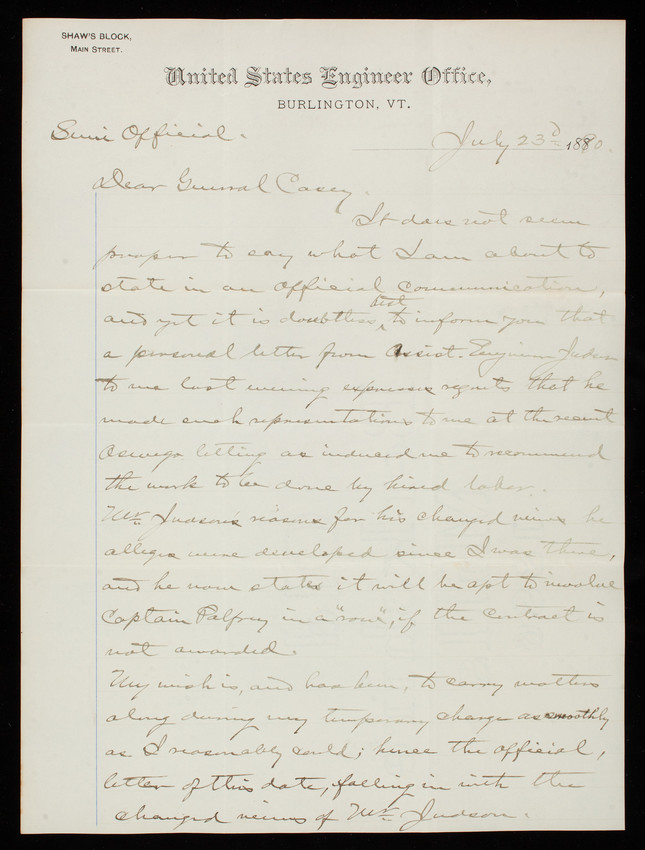 SHAW'S BLOCK,
MAIN STREET.
United States Engineer Office,
BURLINGTON, VT.
Semi Official.
July 23d 1890.
Dear General Casey.
It does not seem
proper to say what I am about to
state in an official communication,
best
and yet it is doubtless to inform you that
a personal letter from Assist. Engineer Judson
to me last evening expresses regrets that he
made such representations to me at the recent
Oswego letting as induced me to recommend
the work to be done by hired labor.
Mr. Judson's reasons for his changed views he
alleges were developed since I was there,
and he now states it will be apt to involve
Captain Palfrey in a "row", if the contract is
not awarded.
My wish is, and has been, to carry matters
along during my temporary charge as smoothly
as I reasonably could; hence the official,
letter of this date, falling in with the
changed views of Mr. Judson.